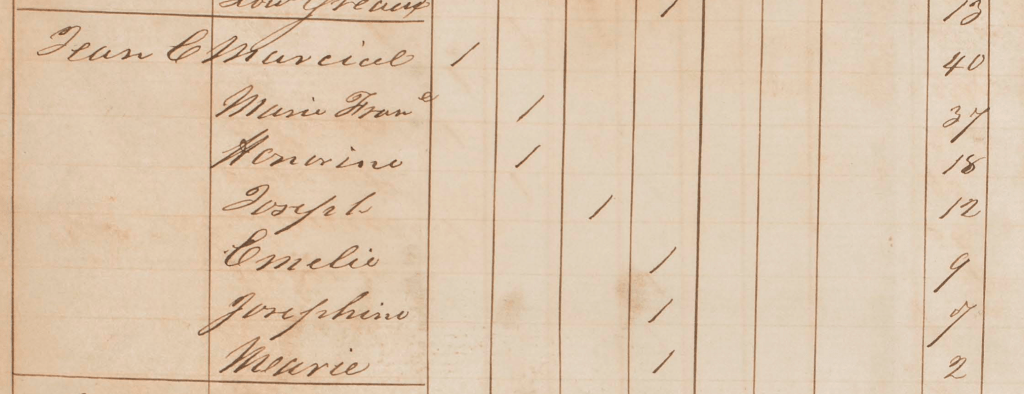 Greaux 1 13
Jean C Marcial 1 40
Marie Franᵉ 1 37
Honorine 1 18
Joseph 1 12
Emelie 1 9
Josephine 1 7
Mearie 1 2